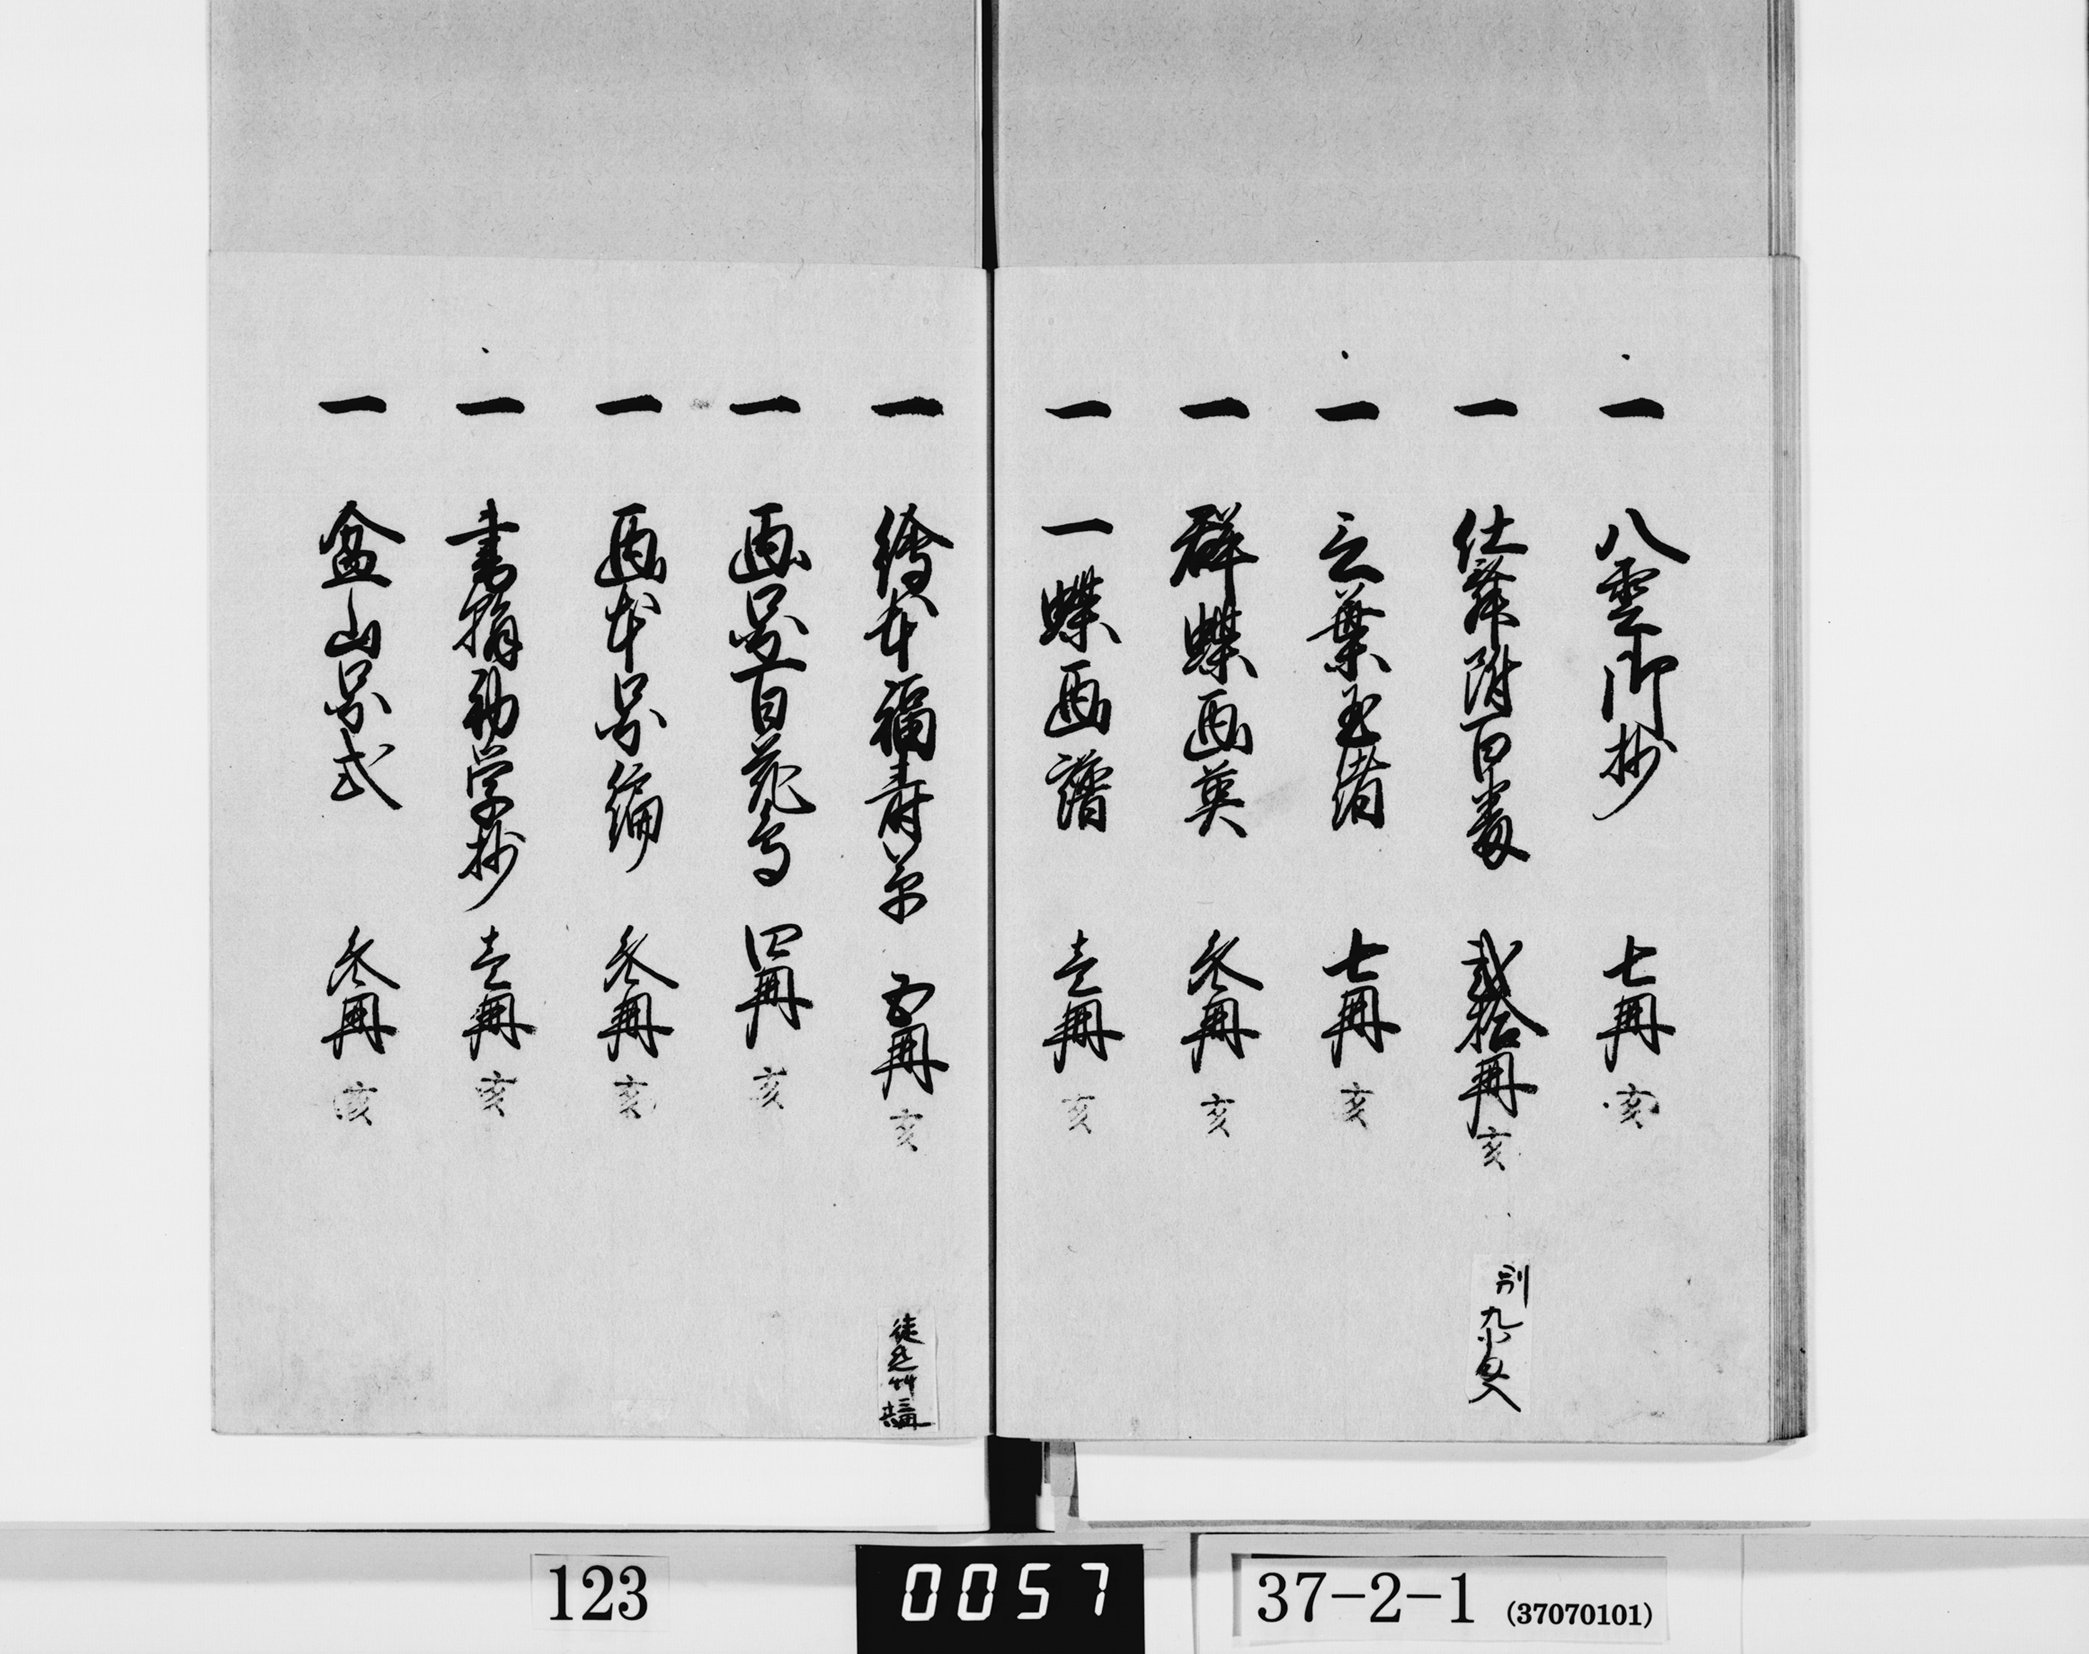 一 八雲御抄 七冊 亥
一 仕舞附百番 弐拾冊 亥
別
一 言葉玉緒 七冊 亥
一 群蝶画英 参冊 亥
一 一蝶画譜 壱冊 亥
一 繪本福寿草 五冊 亥
一 画啚百花鳥 四冊 亥
一 画本啚編 参冊 亥
一 書 初学抄 壱冊 亥
一 盆山啚式 参冊 亥
123
0057
37-2-1 (37070101)